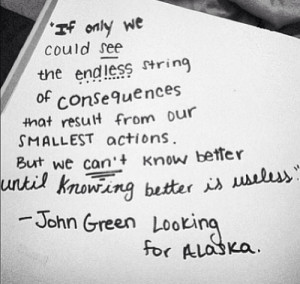 "If only we
could see
the endless string
of consequences
that result from our
SMALLEST actions.
But we can't know better
until knowing better is useless"
- John Green Looking
for ALASKA.